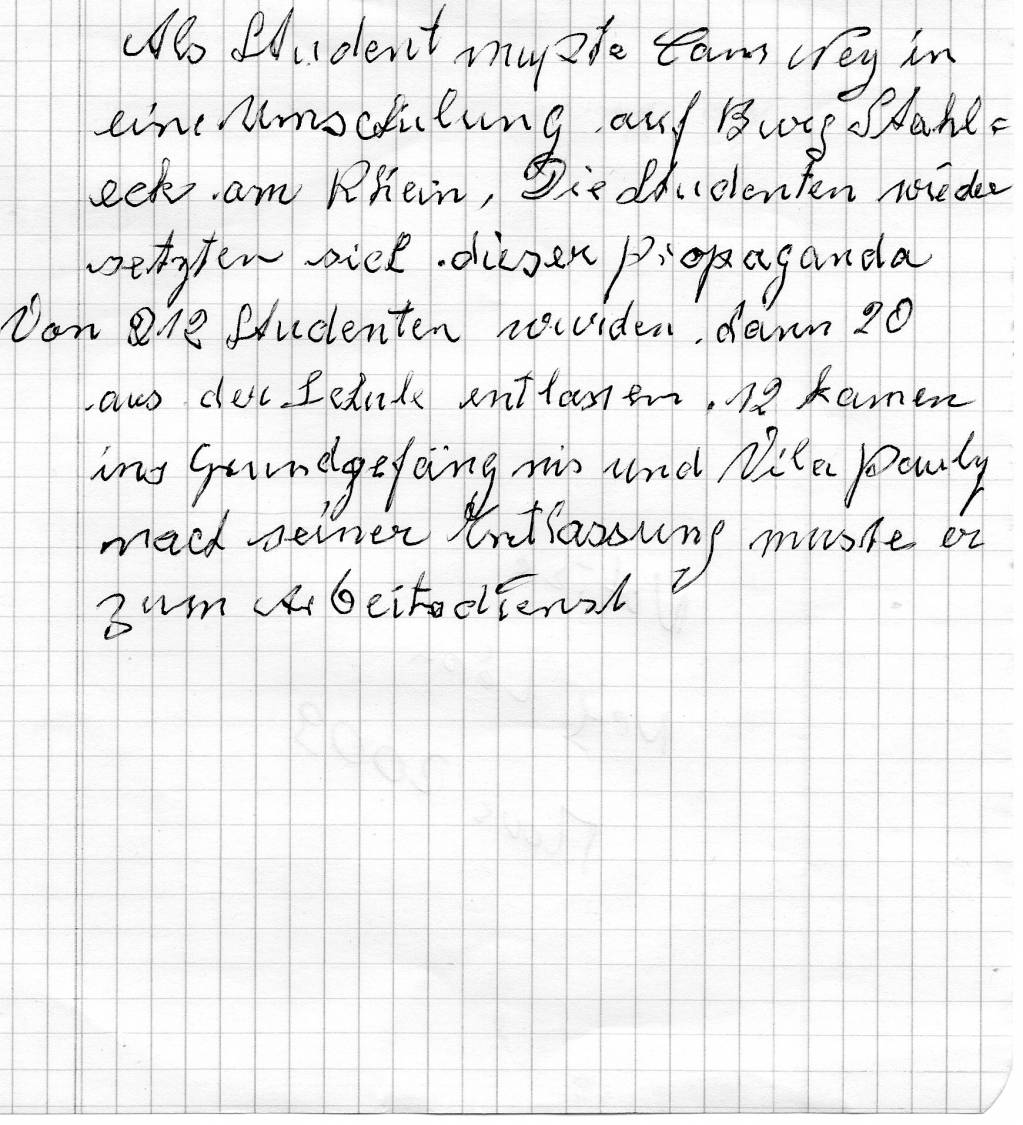 Als Student mußte Cam Ney in
eine Umschulung auf Burg Stahl=
eck am Rhein, Die Studenten wieder
setzten sich dieser Propaganda
Von 212 Studenten wurden dann 20
aus der Schule entlassen. 12 kamen
ins Grundgefängnis und Vila Pauly
nach seiner Entlassung muste er
zum Arbeitsdienst